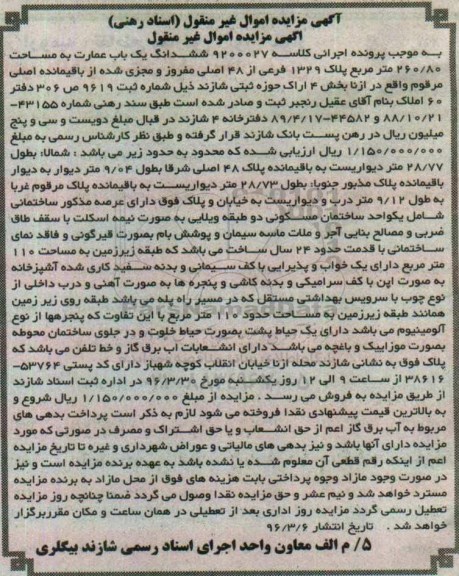 آگهی مزایده اموال غیر منقول (اسناد رهنی)
آگهی مزایده اموال غیر منقول
به موجب پرونده اجرائی کلاسه ۹۲۰۰۰۲۷ ششدانگ یک باب عمارت به مساحت
۲۶۰/۸۰ متر مربع پلاک ۱۳۲۹ فرعی از ۴۸ اصلی مفروز و مجزی شده از باقیمانده اصلی
مرقوم واقع در ازنا بخش ۴ اراک حوزه ثبتی شازند ذیل شماره ثبت ۹۶۱۹ ص ۳۰۶ دفتر
۶۰ املاک بنام آقای عقیل رنجبر ثبت و صادر شده است طبق سند رهنی شماره ۴۳۱۵۵-
۸۸/۱۰/۲۱ و ۴۴۵۸۲-۸۹/۴/۱۷ دفترخانه ۴ شازند در قبال مبلغ دویست و سی و پنج
میلیون ریال در رهن پست بانک شازند قرار گرفته و طبق نظر کارشناس رسمی به مبلغ
۱/۱۵۰/۰۰۰/۰۰۰ ریال ارزیابی شده که محدود به حدود زیر می باشد : شمالا: بطول
۲۸/۷۷ متر دیواریست به باقیمانده پلاک ۴۸ اصلی شرقا بطول ۹/۰۴ متر دیوار به دیوار
باقیمانده پلاک مذبور جنوبا: بطول ۲۸/۷۲ متر دیواریست به باقیمانده پلاک مرقوم غربا
به طول ۹/۱۲ متر درب و دیواریست به خیابان و پلاک فوق دارای عرصه مذکور ساختمانی
شامل یکواحد ساختمان مسکونی دو طبقه ویلایی به صورت نیمه اسکلت با سقف طاق
ضربی و مصالح بنایی آجر و ملات ماسه سیمان و پوشش بام بصورت قیرگونی و فاقد نمای
ساختمانی با قدمت حدود ۲۴ سال ساخت می باشد که طبقه زیرزمین به مساحت ۱۱۰
متر مربع دارای یک خواب و پذیرایی با کف سیمانی و بدنه سفید کاری شده آشپزخانه
به صورت اپن با کف سرامیکی و بدنه کاشی و پنجره ها به صورت آهنی و درب داخلی از
نوع چوب با سرویس بهداشتی مستقل که در مسیر راه پله می باشد طبقه روی زیر زمین
همانند طبقه زیرزمین به مساحت حدود ۱۱۰ متر مربع با این تفاوت که پنجرهها از نوع
آلومینیوم می باشد دارای یک حیاط پشت بصورت حیاط خلوت و در جلوی ساختمان محوطه
بصورت موزاییک و باغچه می باشد دارای انشعابات اب برق گاز و خط تلفن می باشد که
پلاک فوق به نشانی شازند محله ازنا خیابان انقلاب کوچه شهباز دارای کد پستی ۵۳۷۶۴-
۳۸۶۱۶ از ساعت ۹ الی ۱۲ روز یکشنبه مورخ ۹۶/۳/۳۰ در اداره ثبت اسناد شازند
از طریق مزایده به فروش می رسد . مزایده از مبلغ ۱/۱۵۰/۰۰۰/۰۰۰ ریال شروع و
به بالاترین قیمت پیشنهادی نقدا فروخته می شود لازم به ذکر است پرداخت بدهی های
مربوط به آب برق گاز اعم از حق انشعاب و یا حق اشتراک و مصرف در صورتی که مورد
مزایده دارای آنها باشد و نیز بدهی های مالیاتی و عوارض شهرداری و غیره تا تاریخ مزایده
اعم از اینکه رقم قطعی آن معلوم شده یا نشده باشد به عهده برنده مزایده است و نیز
در صورت وجود مازاد وجوه پرداختی بابت هزینه های فوق از محل مازاد به برنده مزایده
مسترد خواهد شد و نیم عشر و حق مزایده نقدا وصول می گردد ضمنا چنانچه روز مزایده
تعطیل رسمی گردد مزایده روز اداری بعد از تعطیلی در همان ساعت و مکان مقرر برگزار
خواهد شد . تاریخ انتشار ۹۶/۳/۶
۵/ م الف معاون واحد اجرای اسناد رسمی شازند بیگلری